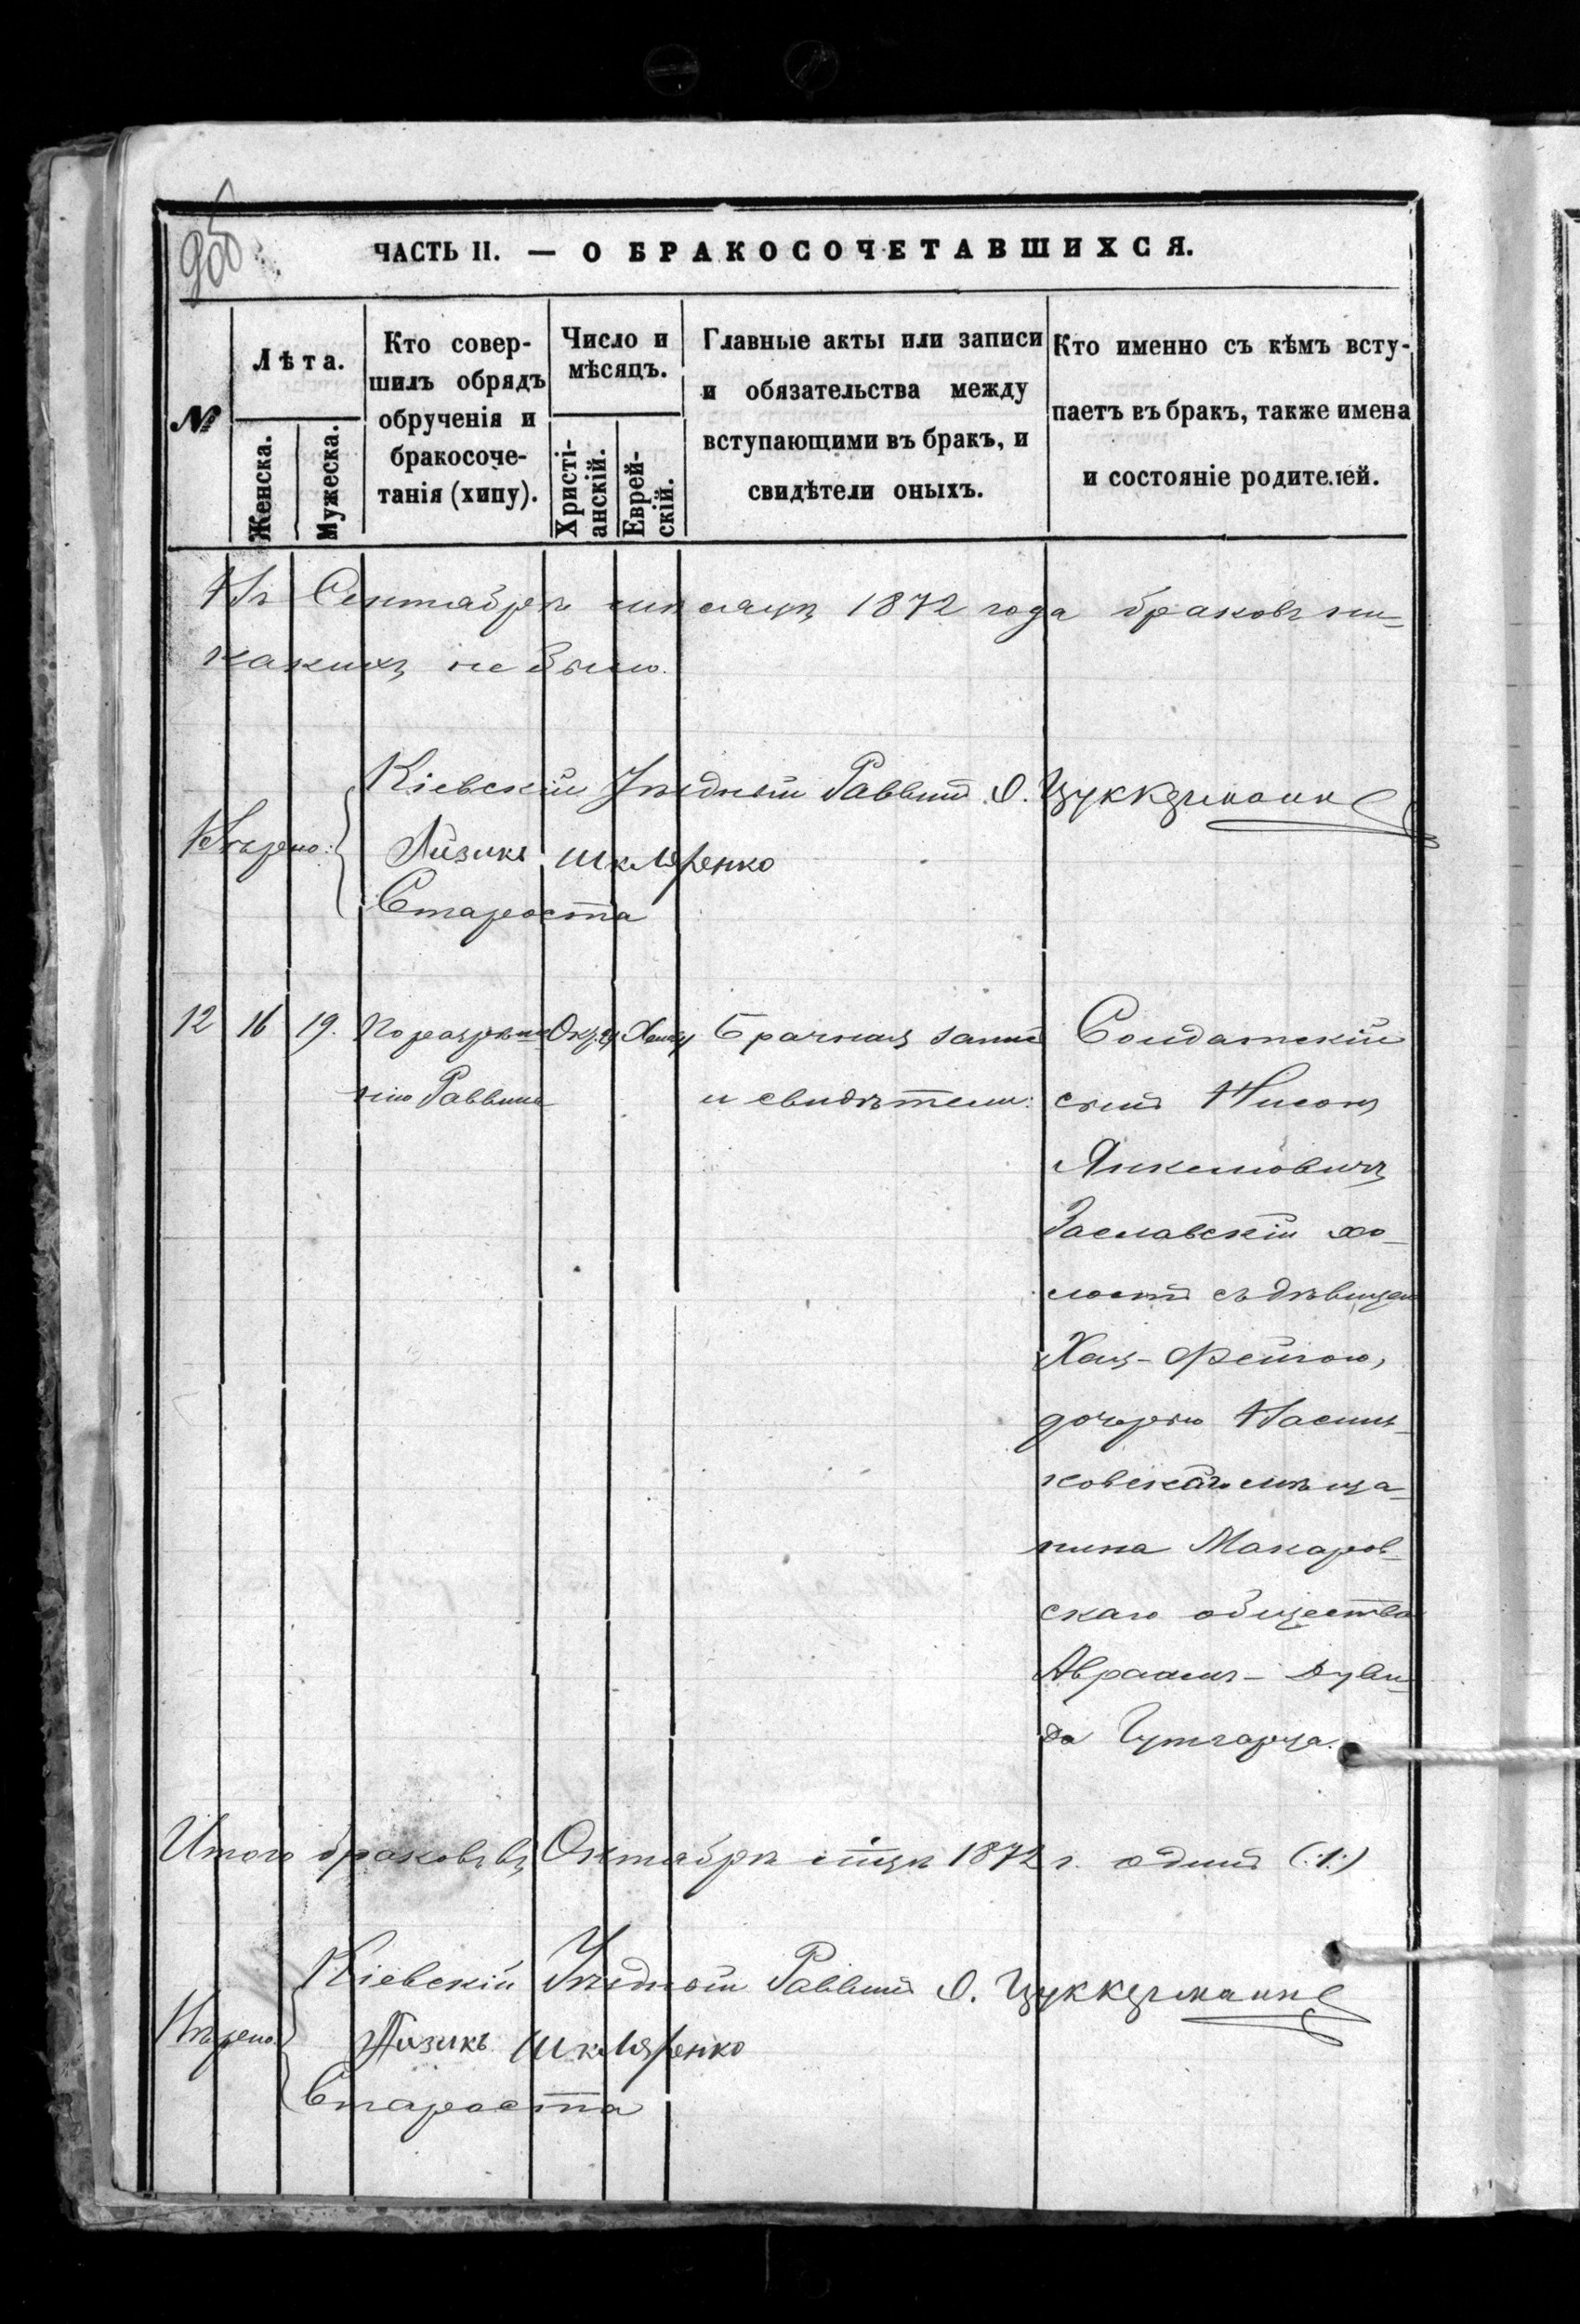 ЧАСТЬ II. — О БРАКОСОЧЕТАВШИХСЯ.
№
Лѣта.
Женска.
Мужеска.
Кто совер-
шилъ обрядъ
обрученія и
бракосоче-
танія (хипу).
Число и
мѣсяцъ.
Христі-
анскій.
Еврей-
скій.
Главные акты или записи
и обязательства между
вступающими въ бракъ, и
свидѣтели оныхъ.
Кто именно съ кѣмъ всту-
паетъ въ бракъ, также имена
и состояніе родителей.
Въ Сентябрѣ мѣсяцѣ 1872 года браковъ ни-
какихъ не было.
Кіевскій Уѣздный Раввинъ О. Цуккерманн
Вѣрно:
Айзикъ Шкляренко
Староста
12 16 19. По разрѣше- Брачная запись Солдатскій
нію Раввина и свидѣтели: сынъ Нисонъ
Янкелевичъ
Заславскій хо-
лостъ съ дѣвицею
Хая-Фейгою,
дочерью Василь-
ковскаго мѣща-
нина Макаров-
скаго общества
Авраамъ-Дуви-
да Гутгарца.
Итого браковъ въ Октябрѣ м-цѣ 1872 г. одинъ (:1:)
Кіевскій Уѣздный Раввинъ О. Цуккерманн
Вѣрно:
Айзикъ Шкляренко
Староста